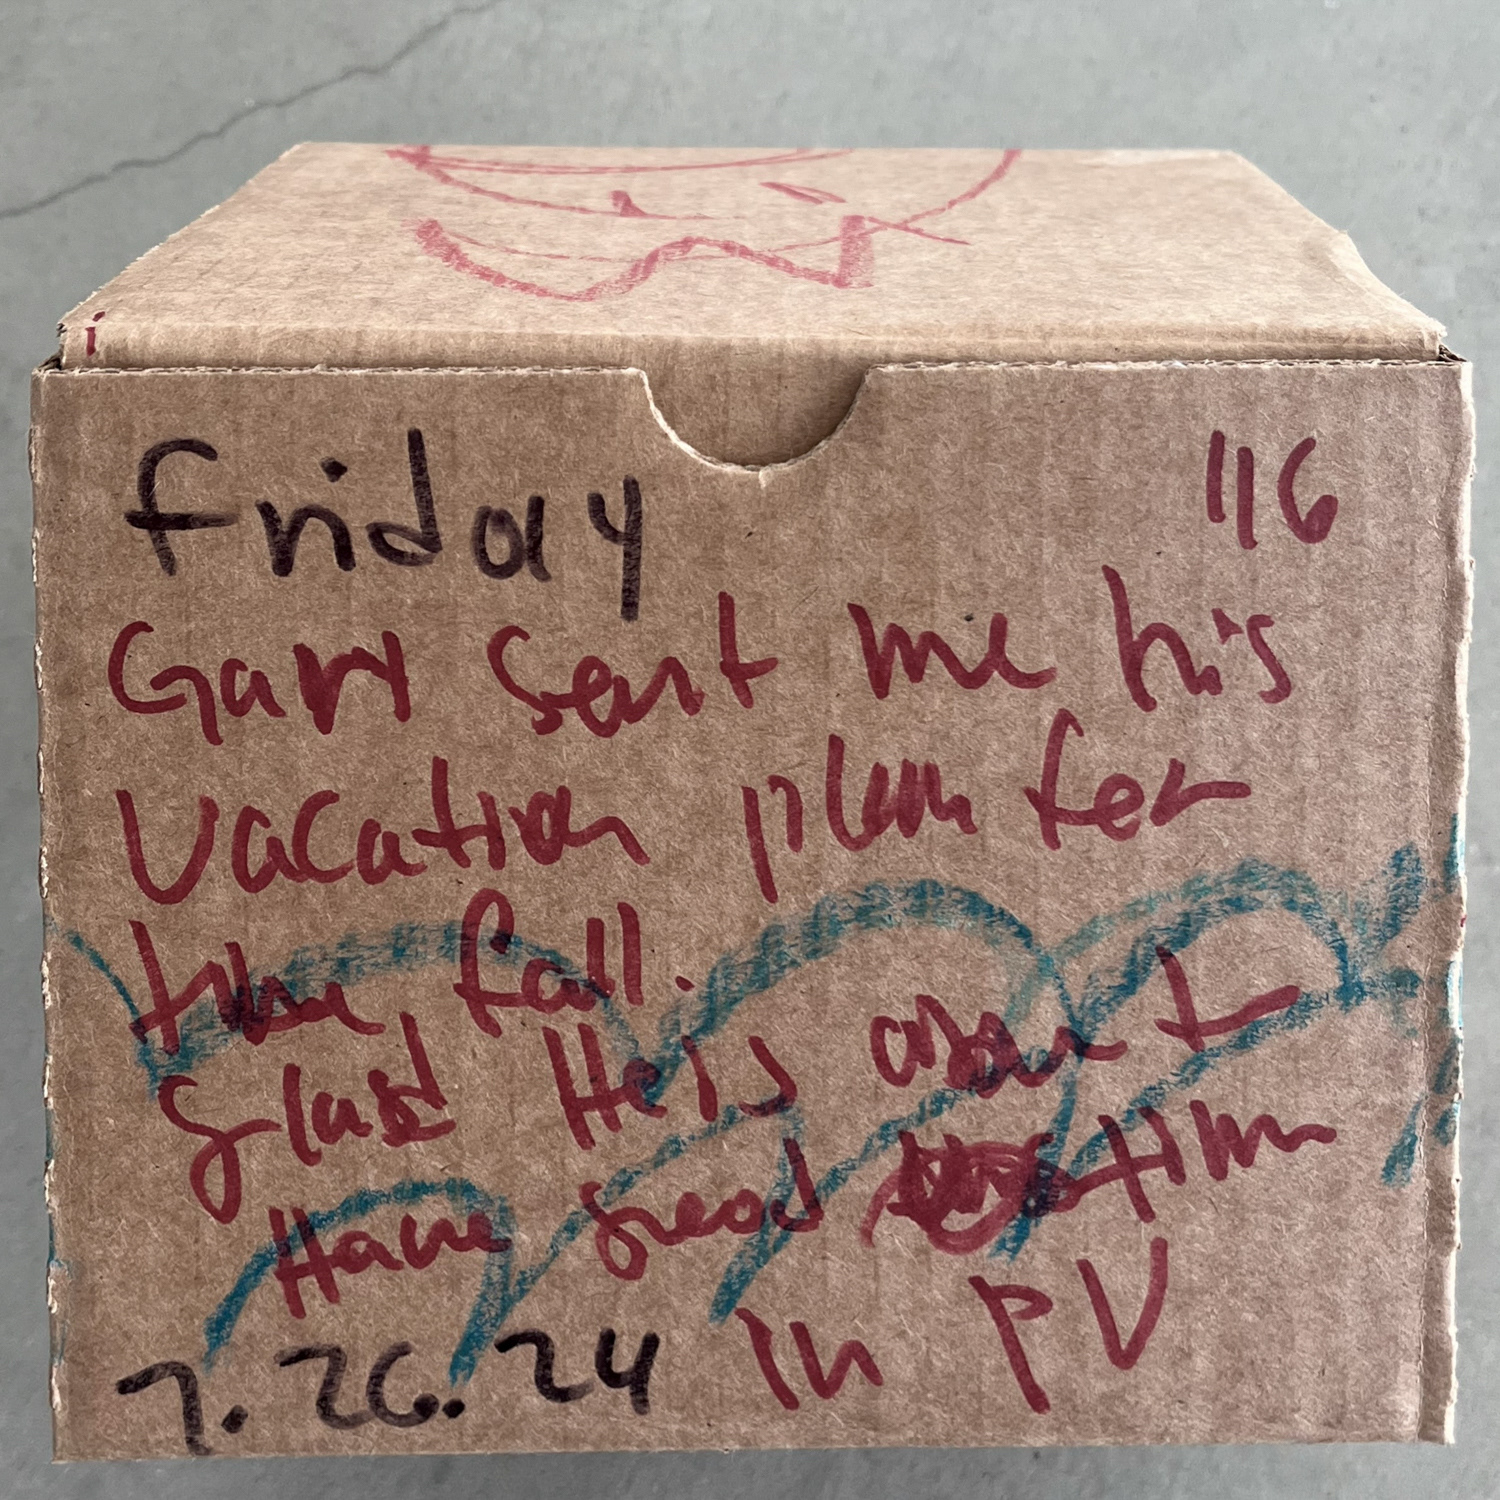 Friday 116
Gary sent me his
Vacation plan for
the fall.
glad He is about
Have good time
7.26.24 In PV